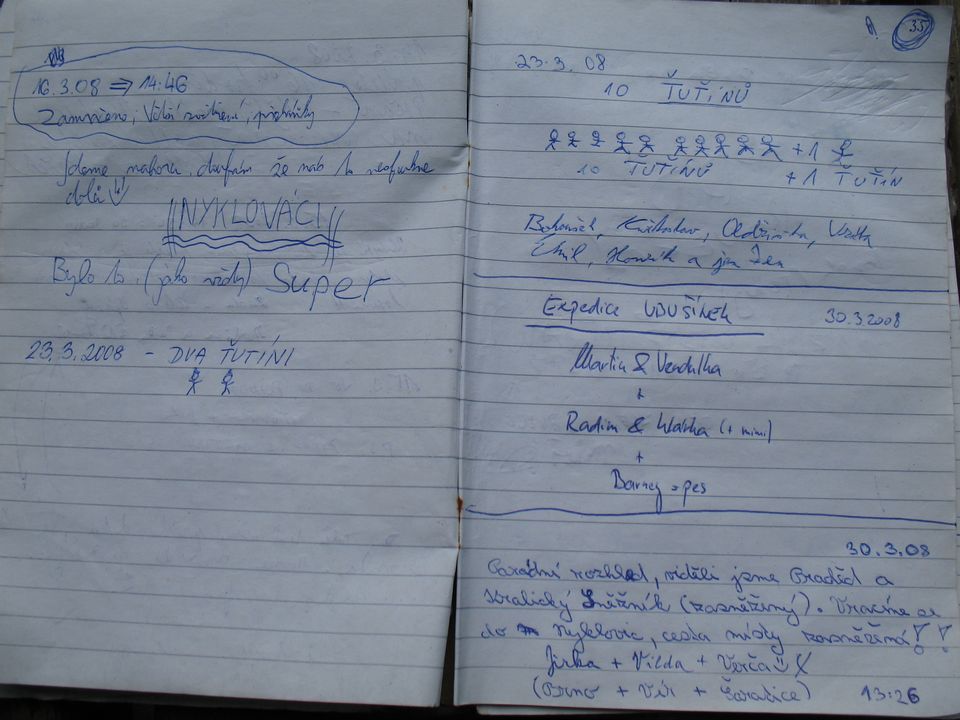 16.3.08 ⇒ 14:46
Zamračeno, Větší sněžení, přeháňky
Jdeme nahoru, doufám že nás to neofukne
dolů
NYKLOVÁCI
Bylo to (jako vždy) Super
23.3.2008 - DVA ŤUTÍNI
A. 35
23.3.08
10 ŤUTÍNŮ
+1
10 ŤUTÍNŮ +1 ŤUTÍN
Bohoušek, Květoslav, Oldřiška,
Emil, Honzík a jen
Expedice UDUŠÍNEK 30.3.2008
Martin & Vendulka
+
Radim & Warka (+ mimi)
+
Barney = pes
30.3.08
Parádní rozhled, viděli jsme Praděd a
Kralický Sněžník (zasněžený). Vracíme se
do Nyklovic, cesta místy zasněžená!!
Jirka + Vilda + Verča
(Brno + Vír + Šaratice) 13:26